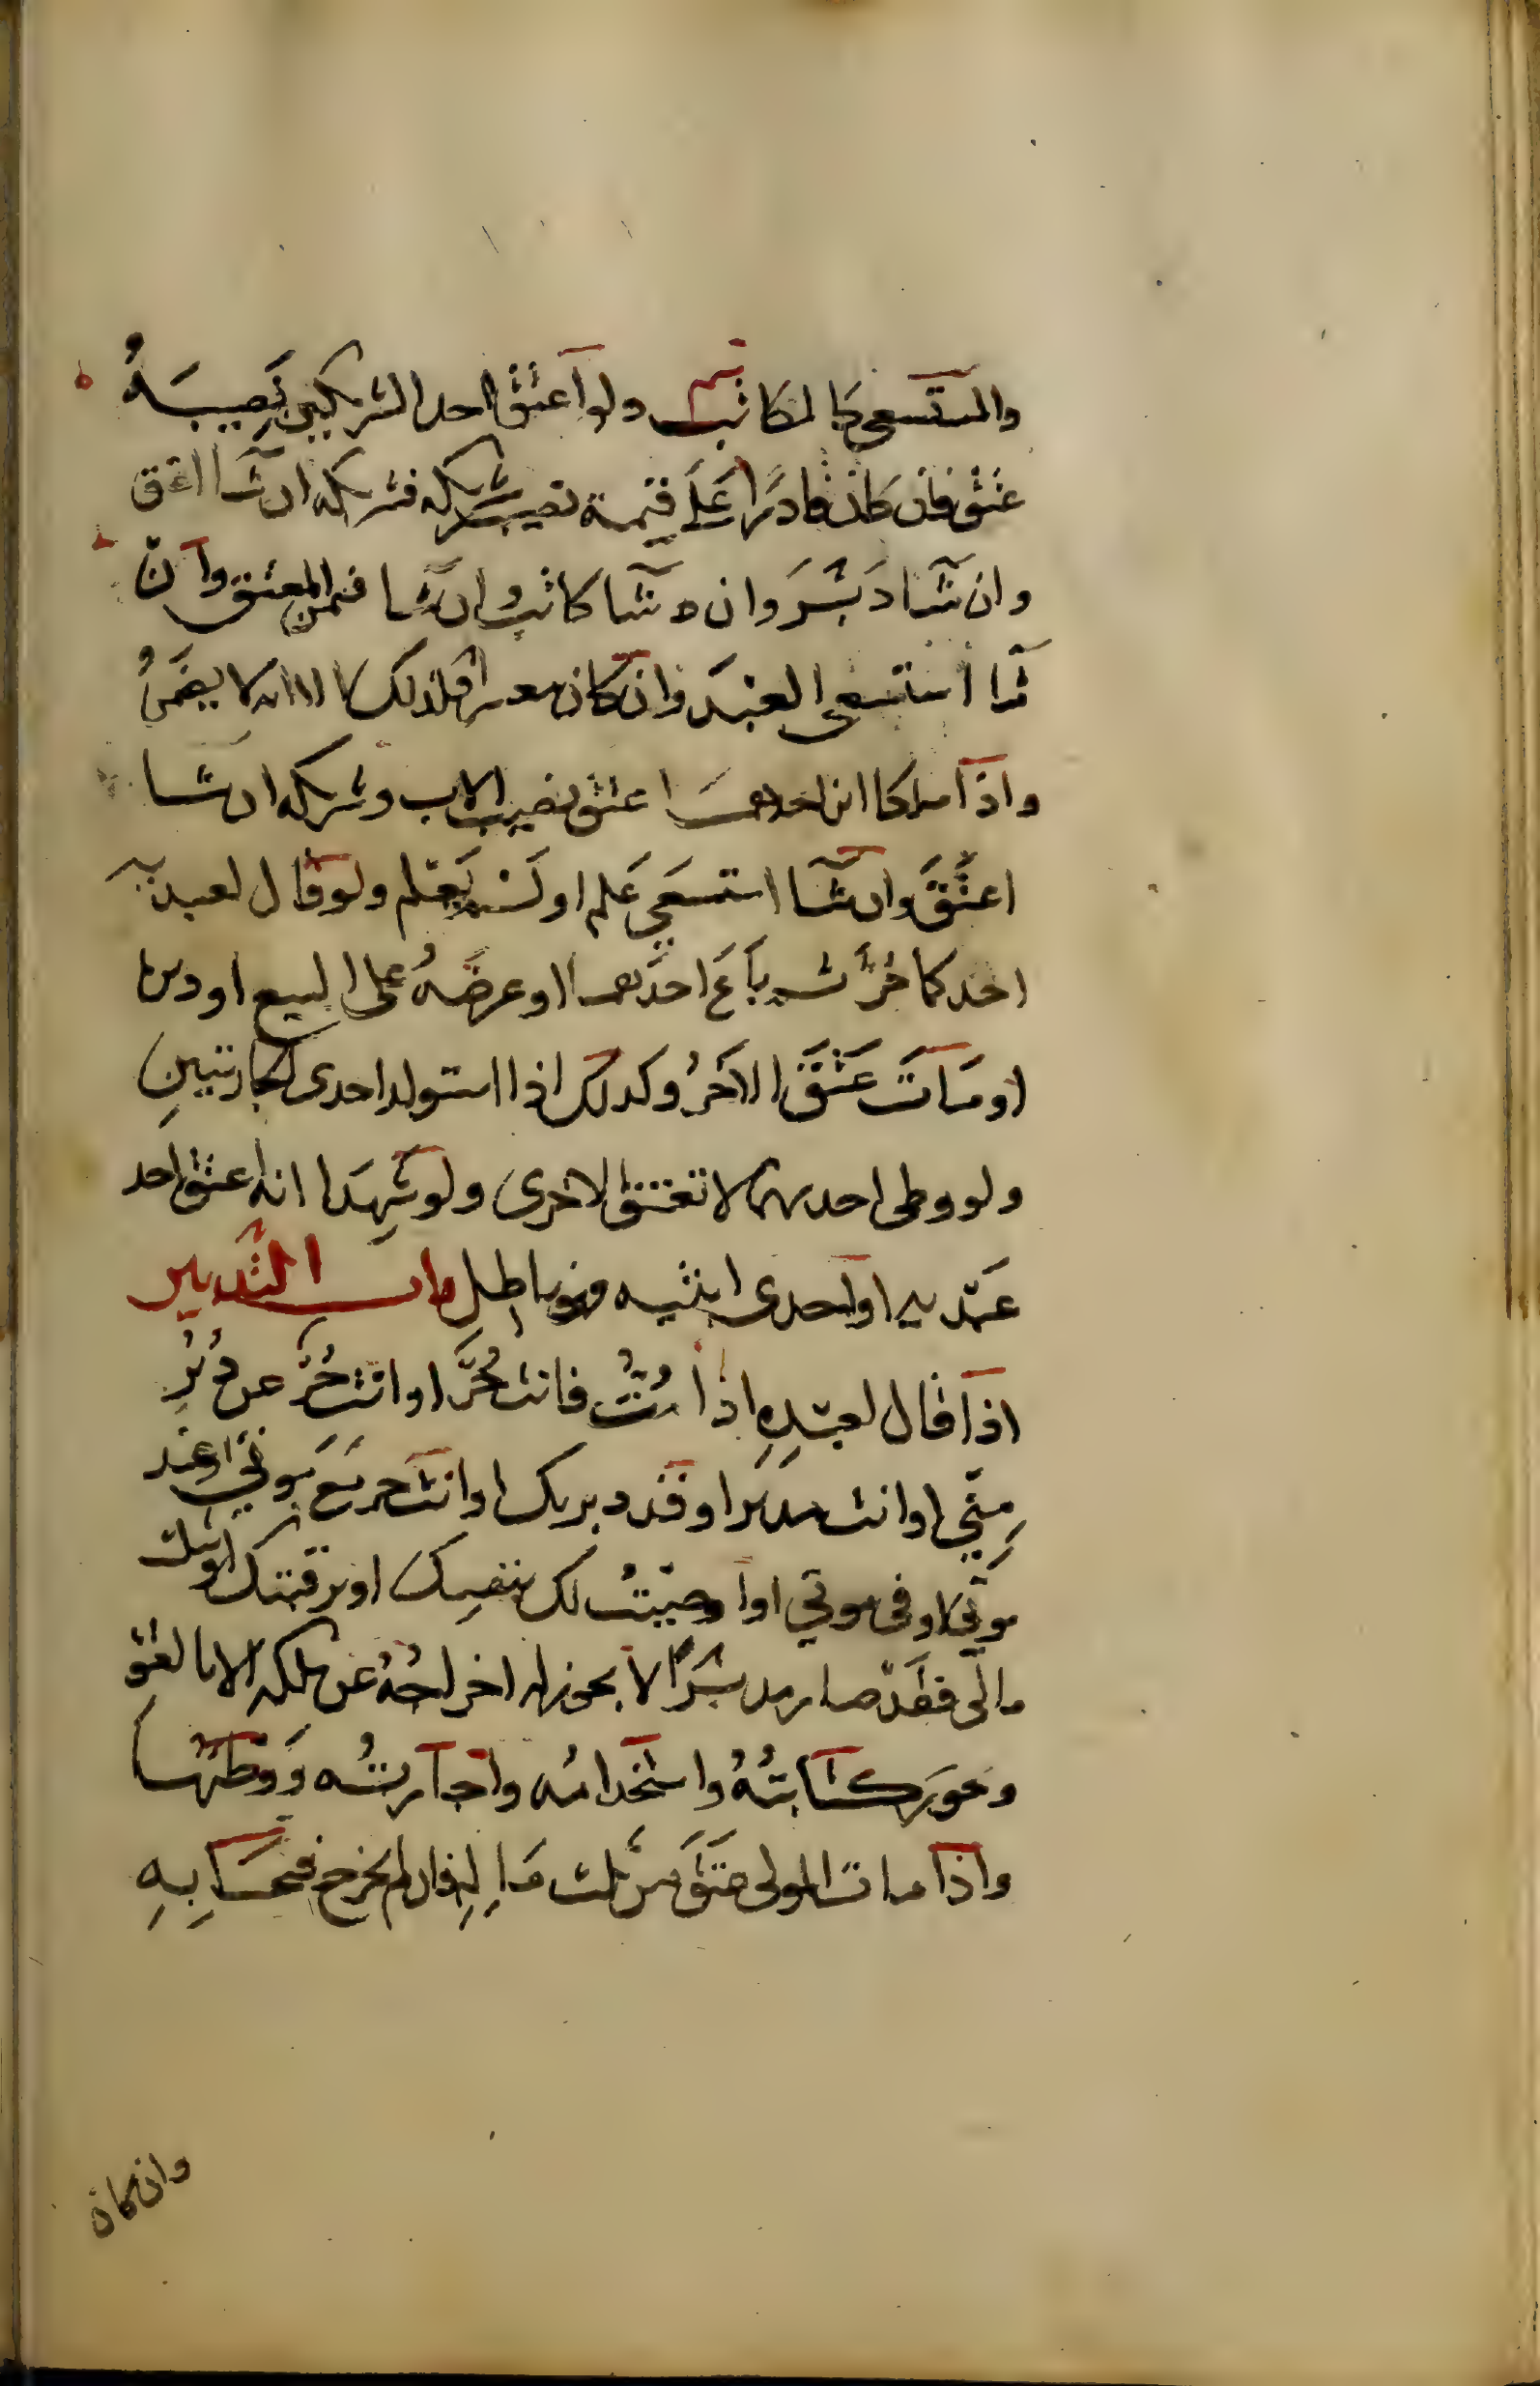 والمستسعى كالمكاتب ولو اعتق احد الشريكين نصيبَهُ
عتق فان كان قادرًا عَلَى قيمة نصيب شريكه فشريكه ان شا اعتق
وان شا دبَّر وان شا كاتب وان شا ضمن المعتق وان
شا استسعى العبد وان كان معسرا فكذلك الا انه لا يضمنُ
واذا ملكا ابن احدهما عتق نصيب الاب وشريكه ان شا
اعتَقَ وان شا استسعى علم او لم يعلم ولو قال لعبديه
احدكما حُرٌّ ثم باَعَ احدَهما او عرضَهُ على البيع او دبره
او مَاتَ عَتَقَ الاخَرُ وكذلك اذا استولد احدى الجاريتينِ
ولو وطى احديهما لا تعتق الاخرى ولو شَهِدَا انه اعتق احد
عَبْديه او احدى امتيه فهو باطل باب التدبير
اذا قال لعبْدِهِ اذا مُتُّ فانت حُرٌّ او انت حُرٌّ عن دُبُرٍ
مِنِّي او انت مدبَر او قد دبرتك او انت حر مَعَ موتي او عند
موتي او في موتي او اوصيتُ لك بنفسِكَ او برقبتك او بثلث
مالي فقَدْ صار مدبَّرًا لا يجوز له اخراجُهُ عن ملكه الا بالعتقِ
وتجوز كتَابتُهُ واستخدامُه واجارتُه وَوَطئها
واذا مات المولى عتَقَ من ثلث مَالِهِ فان لم يخرج فبحسَابِهِ
وان كان